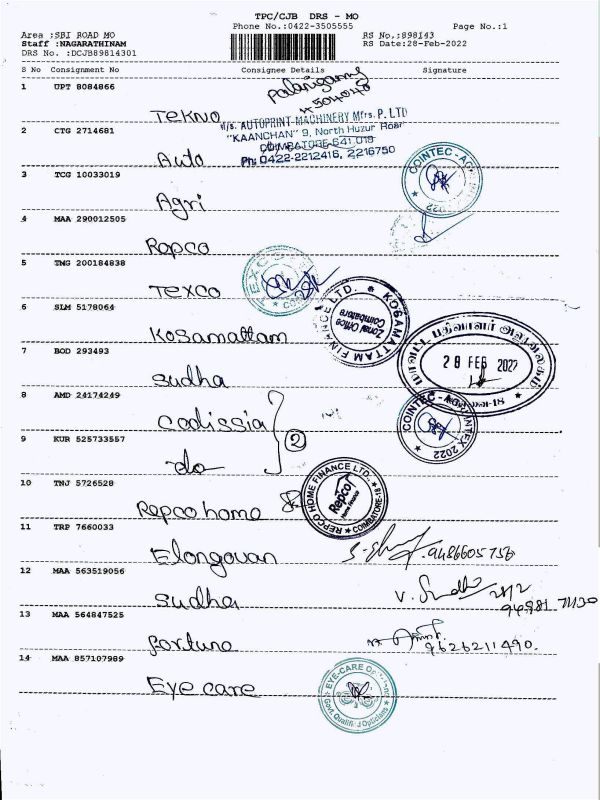 TPC/CJB DRS - MO
Phone No.:0422-3505555
Page No.:1
Area :SBI ROAD MO
RS No.:898143
Staff :NAGARATHINAM
RS Date:28-Feb-2022
DRS No. :DCJB89814301
S No Consignment No Consignee Details Signature
1 UPT 8084866
Tekno
M/s. AUTOPRINT MACHINERY Mfrs. P. LTD
"KAANCHAN" 9, North Huzur Road
COIMBATORE-641 018
Ph: 0422-2212416, 2216750
2 CTG 2714681
Auto
3 TCG 10033019
Agri
COINTEC-AG
2022
4 MAA 290012505
Repco
5 TMG 200184838
Texco
TEXCO
6 SLM 5178064
Kosamattam
KOSAMATTAM FINANCE LTD.
Zonal Office
Coimbatore
7 BOD 293493
Sudha
மாவட்ட பதிவாளர் அலுவலகம்
28 FEB 2022
8 AMD 24174249
Codissia
COINTEC - 2022
9 KUR 525733557
do
2
10 TNJ 5726528
Repco home
REPCO HOME FINANCE LTD.
COIMBATORE-18
Repco
Home Finance
11 TRP 7660033
Elongovan
9486605756
12 MAA 563519056
Sudha
V. Sudha
28/2
13 MAA 564847525
fortune
9626211490.
14 MAA 857107989
Eye care
EYE-CARE Opticians
Govt. Qualified Opticians